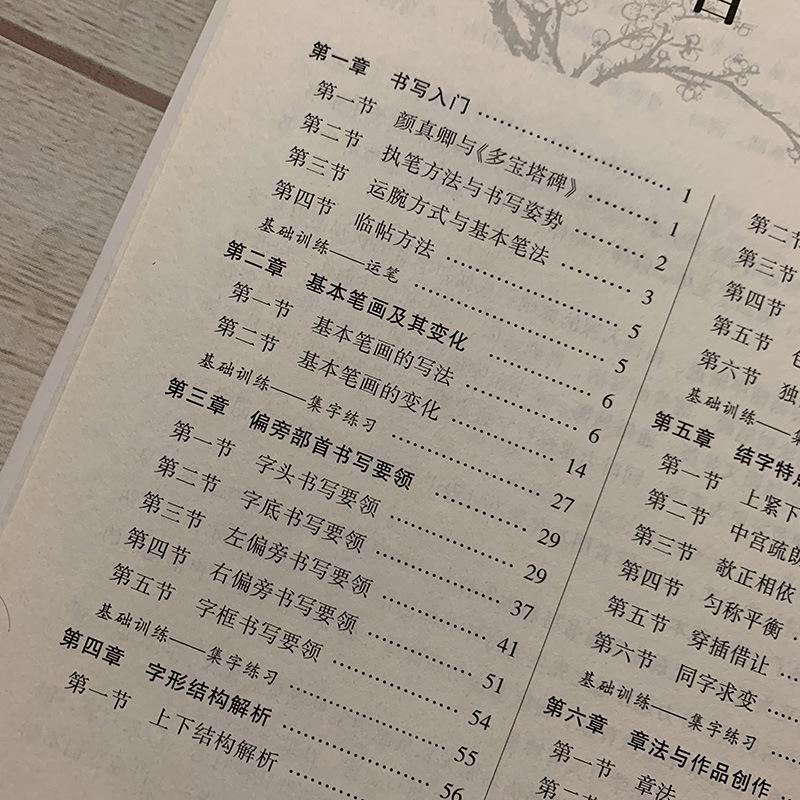 第一章 书写入门 1
第一节 颜真卿与《多宝塔碑》 1
第二节 执笔方法与书写姿势 2
第三节 运腕方式与基本笔法 3
第四节 临帖方法 5
基础训练——运笔 5
第二章 基本笔画及其变化 6
第一节 基本笔画的写法 6
第二节 基本笔画的变化 14
基础训练——集字练习 27
第三章 偏旁部首书写要领 29
第一节 字头书写要领 29
第二节 字底书写要领 37
第三节 左偏旁书写要领 41
第四节 右偏旁书写要领 51
第五节 字框书写要领 54
基础训练——集字练习 55
第四章 字形结构解析 56
第一节 上下结构解析
第二节
第三节
第四节
第五节
第六节 独
基础训练——集
第五章 结字特点
第一节 上紧下
第二节 中宫疏朗
第三节 欹正相依
第四节 匀称平衡
第五节 穿插借让
第六节 同字求变
基础训练——集字练习
第六章 章法与作品创作
第一节 章法
第二节